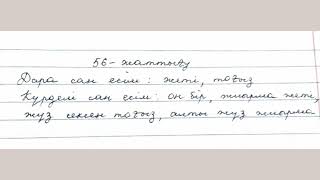 56 - жаттығу
Дара сан есім : жеті, тоғыз
Күрделі сан есім : он бір, жиырма жеті,
жүз сексен тоғыз, алты жүз жиырма